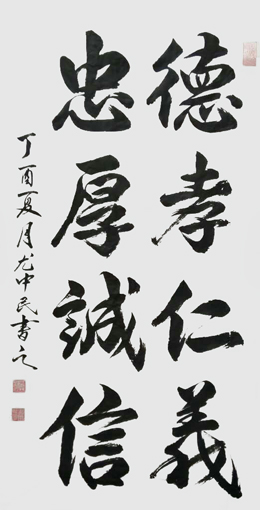 德孝仁義
忠厚誠信
丁酉夏月尤中民書之